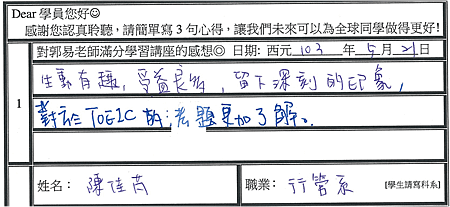 Dear 學員您好☺
感謝您認真聆聽，請簡單寫3句心得，讓我們未來可以為全球同學做得更好!
對郭易老師滿分學習講座的感想◎ 日期: 西元 103 年 5 月 21 日
1
生動有趣，受益良多，留下深刻的印象，
對於TOEIC的考題更加了解。
姓名: 陳佳芮
職業: 行管系 [學生請寫科系]